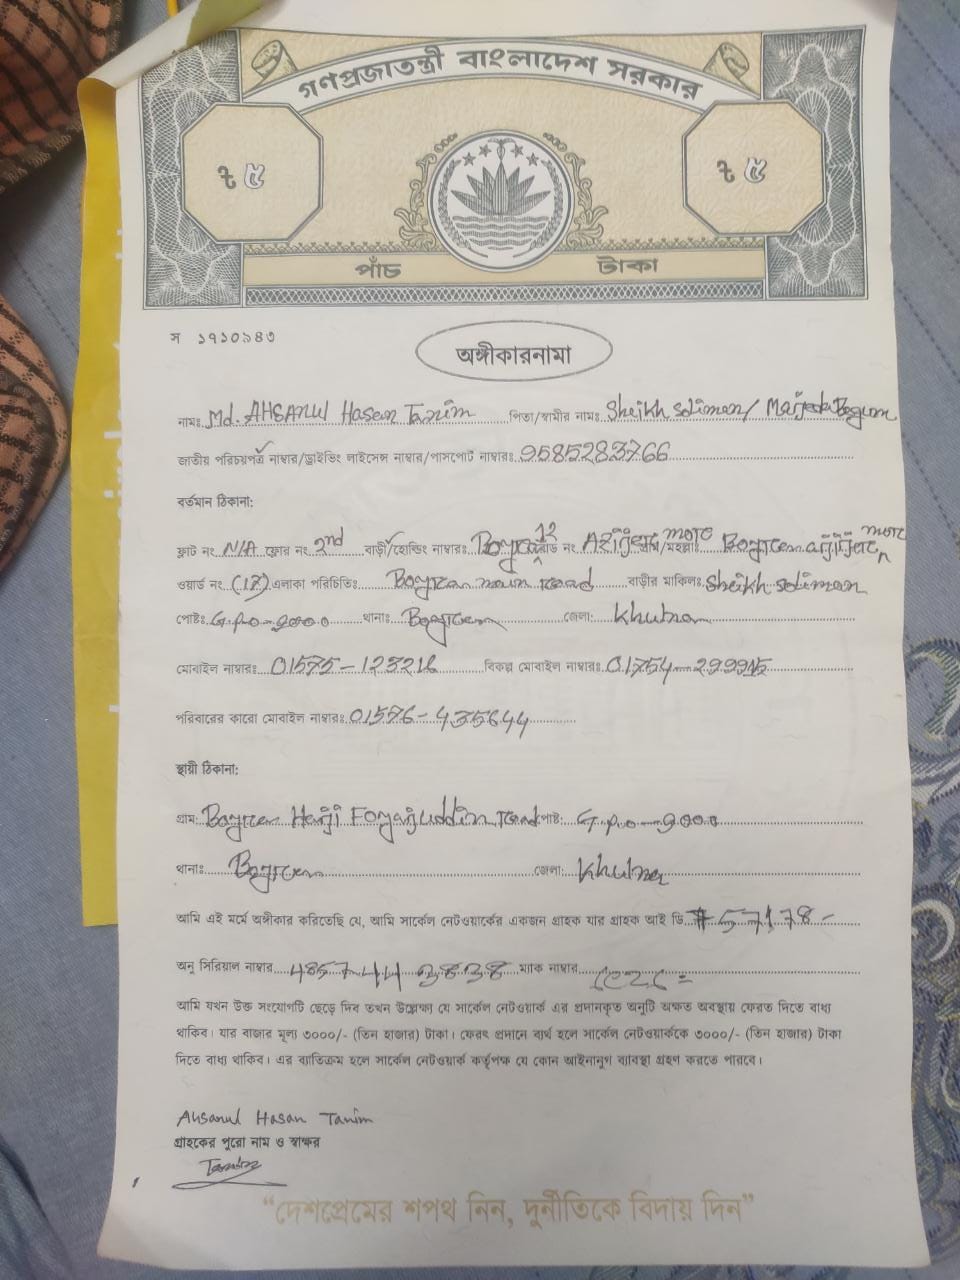 গণপ্রজাতন্ত্রী বাংলাদেশ সরকার
৳ ৫ ৳ ৫
পাঁচ টাকা
স ১৭১০৯৪৩
অঙ্গীকারনামা
নামঃ Md. AHSANUl Hasan Tanim পিতা/স্বামীর নামঃ Sheikh soliman/ Marjeda Begum
জাতীয় পরিচয়পত্র নাম্বার/ড্রাইভিং লাইসেন্স নাম্বার/পাসপোর্ট নাম্বারঃ 9585283766
বর্তমান ঠিকানা:
ফ্লাট নং N/A ফ্লোর নং 2nd বাড়ী/হোল্ডিং নাম্বারঃ 12 more more
ওয়ার্ড নং (17) এলাকা পরিচিতিঃ Boyra main Road বাড়ীর মালিকঃ Sheikh soliman
পোষ্টঃ G.p.o-9000 থানাঃ Boyra জেলা: Khulna
মোবাইল নাম্বারঃ বিকল্প মোবাইল নাম্বারঃ
পরিবারের কারো মোবাইল নাম্বারঃ 01576-435644
স্থায়ী ঠিকানা:
গ্রাম: Boyra Hazi Foyajuddin Road পোষ্ট: G.p.o-9000
থানাঃ Boyra জেলা: Khulna
আমি এই মর্মে অঙ্গীকার করিতেছি যে, আমি সার্কেল নেটওয়ার্কের একজন গ্রাহক যার গ্রাহক আই ডি. #57178-
অনু সিরিয়াল নাম্বার 48574443838 ম্যাক নাম্বার
আমি যখন উক্ত সংযোগটি ছেড়ে দিব তখন উল্লেক্ষ্য যে সার্কেল নেটওয়ার্ক এর প্রদানকৃত অনুটি অক্ষত অবস্থায় ফেরত দিতে বাধ্য
থাকিব। যার বাজার মূল্য ৩০০০/- (তিন হাজার) টাকা। ফেরৎ প্রদানে ব্যর্থ হলে সার্কেল নেটওয়ার্ককে ৩০০০/- (তিন হাজার) টাকা
দিতে বাধ্য থাকিব। এর ব্যতিক্রম হলে সার্কেল নেটওয়ার্ক কর্তৃপক্ষ যে কোন আইনানুগ ব্যাবস্থা গ্রহণ করতে পারবে।
Ahsanul Hasan Tanim
গ্রাহকের পুরো নাম ও স্বাক্ষর
Tanim
“দেশপ্রেমের শপথ নিন, দুর্নীতিকে বিদায় দিন”